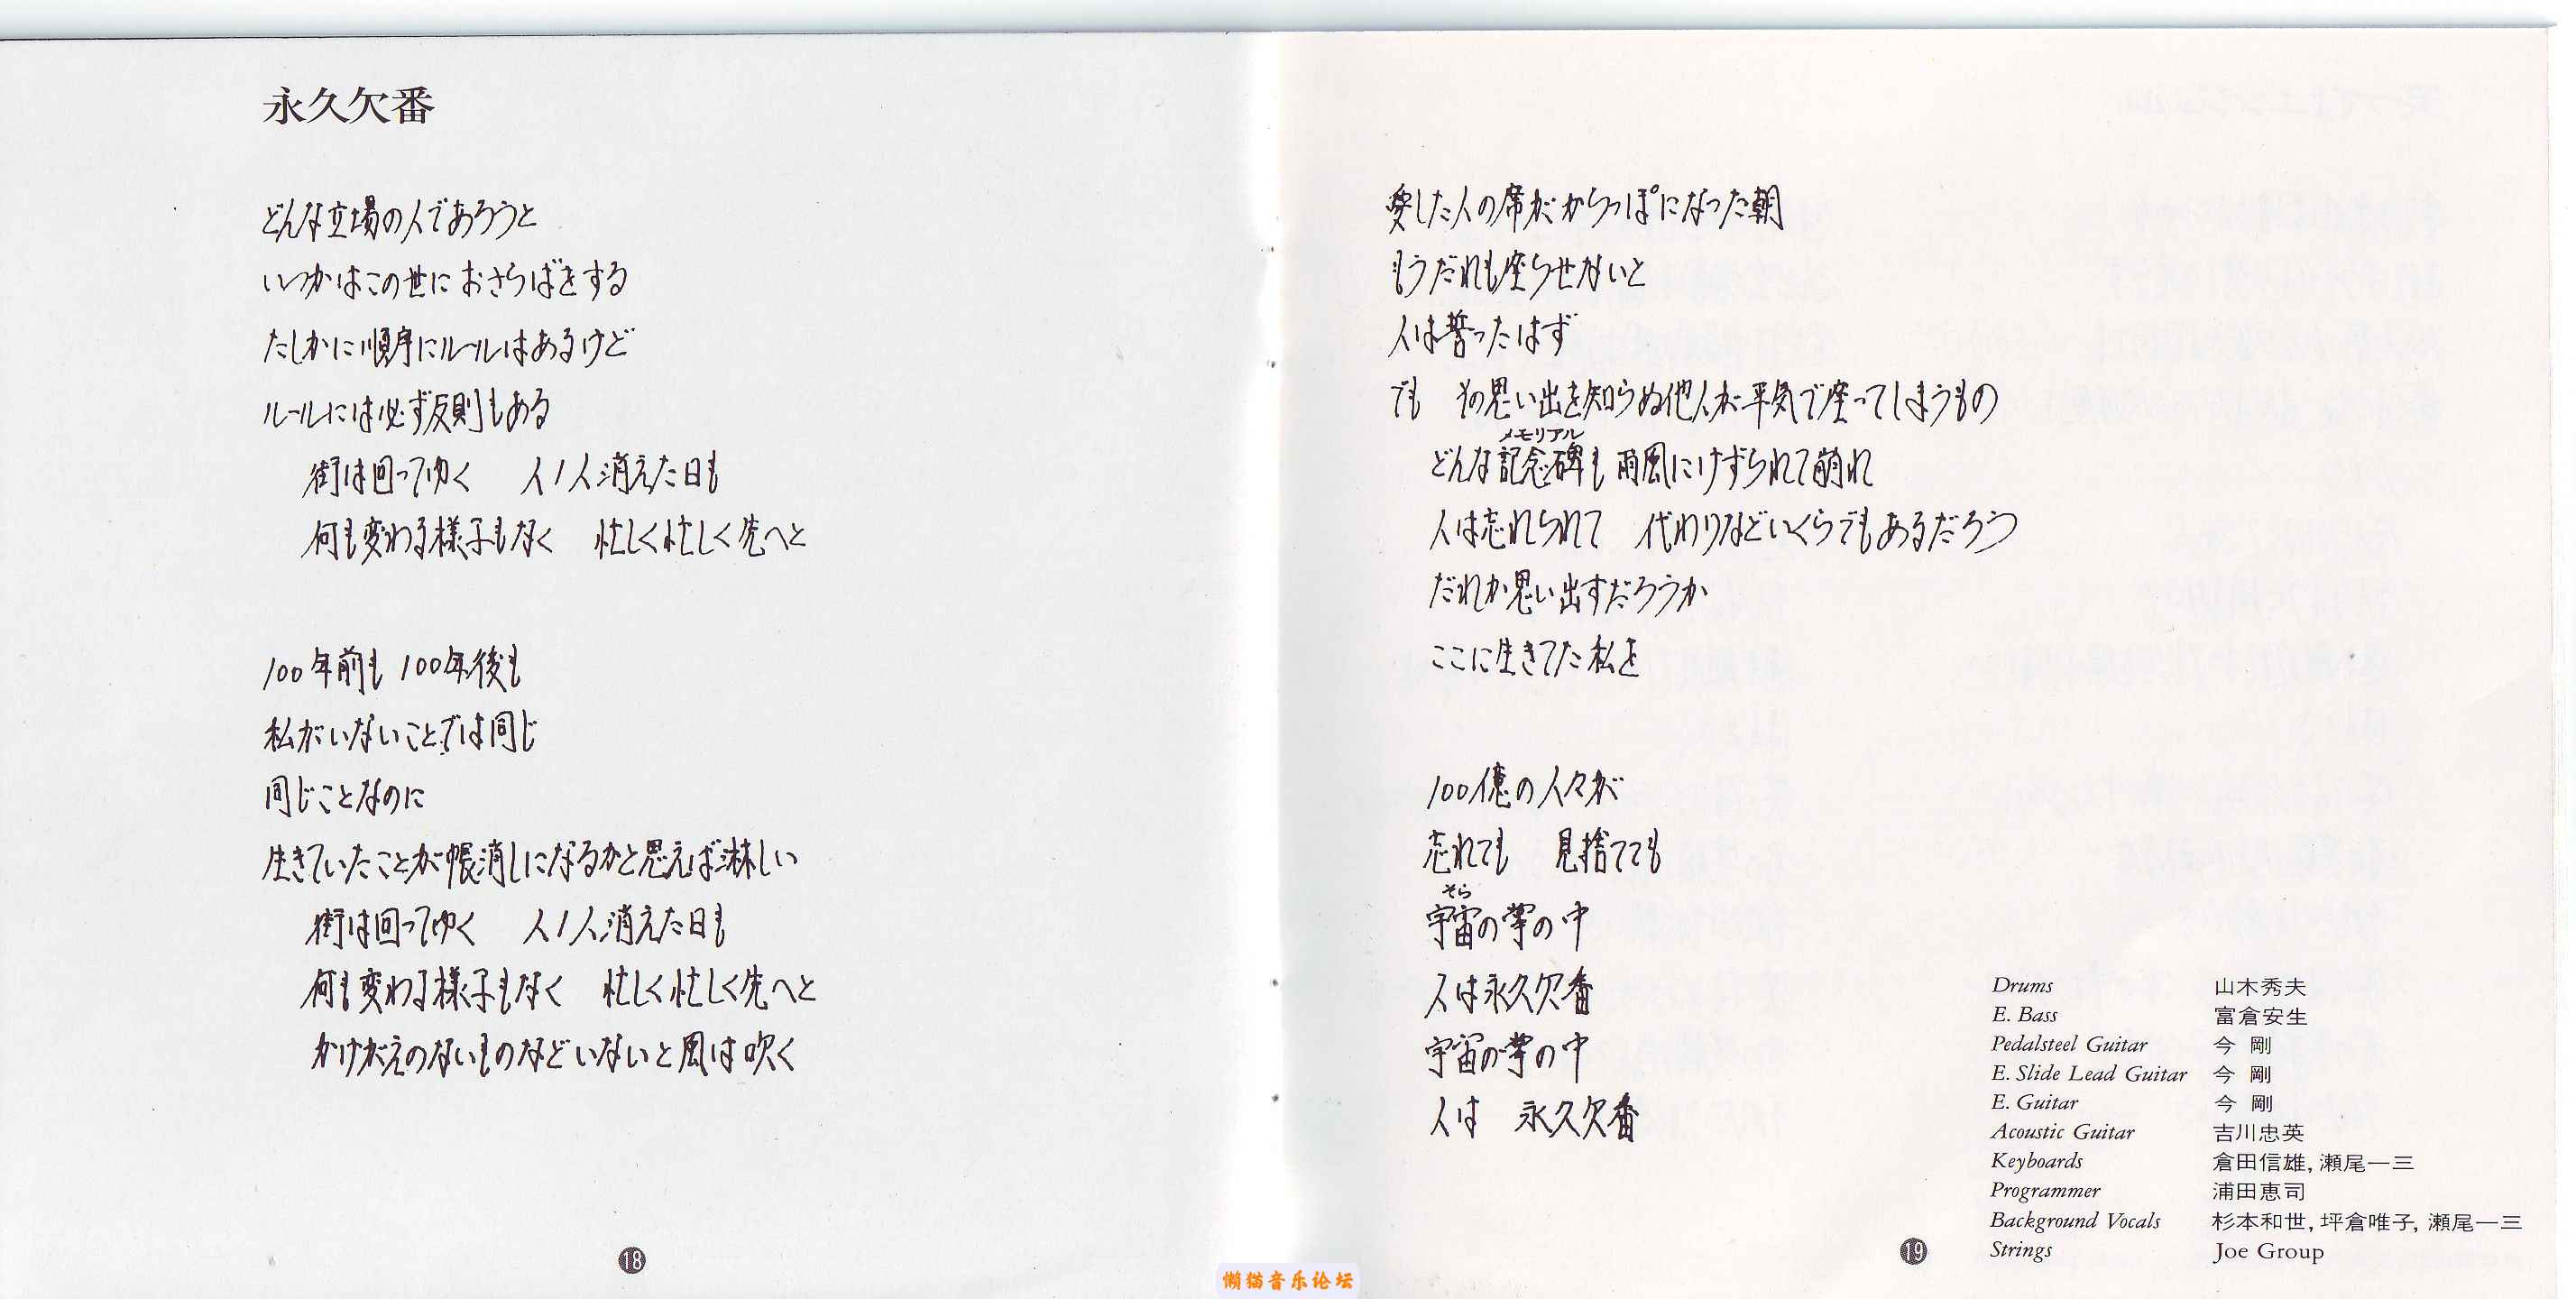 永久欠番
どんな立場の人であろうと
いつかはこの世におさらばをする
たしかに順序にルールはあるけど
ルールには必ず反則もある
街は回ってゆく　人1人消えた日も
何も変わる様子もなく　忙しく忙しく先へと
100年前も 100年後も
私がいないことでは同じ
同じことなのに
生きていたことが帳消しになるかと思えば淋しい
街は回ってゆく　人1人消えた日も
何も変わる様子もなく　忙しく忙しく先へと
かけがえのないものなどいないと風は吹く
18
愛した人の席がからっぽになった朝
もうだれも座らせないと
人は誓ったはず
でも　その思い出を知らぬ他人が平気で座ってしまうもの
メモリアル
どんな記念碑も雨風にけずられて崩れ
人は忘れられて　代わりなどいくらでもあるだろう
だれか思い出すだろうか
ここに生きてた私を
100億の人々が
忘れても　見捨てても
そら
宇宙の掌の中
人は永久欠番
宇宙の掌の中
人は　永久欠番
Drums 山木秀夫
E. Bass 富倉安生
Pedalsteel Guitar 今 剛
E. Slide Lead Guitar 今 剛
E. Guitar 今 剛
Acoustic Guitar 吉川忠英
Keyboards 倉田信雄, 瀬尾一三
Programmer 浦田恵司
Background Vocals 杉本和世, 坪倉唯子, 瀬尾一三
Strings Joe Group
19
懒猫音乐论坛